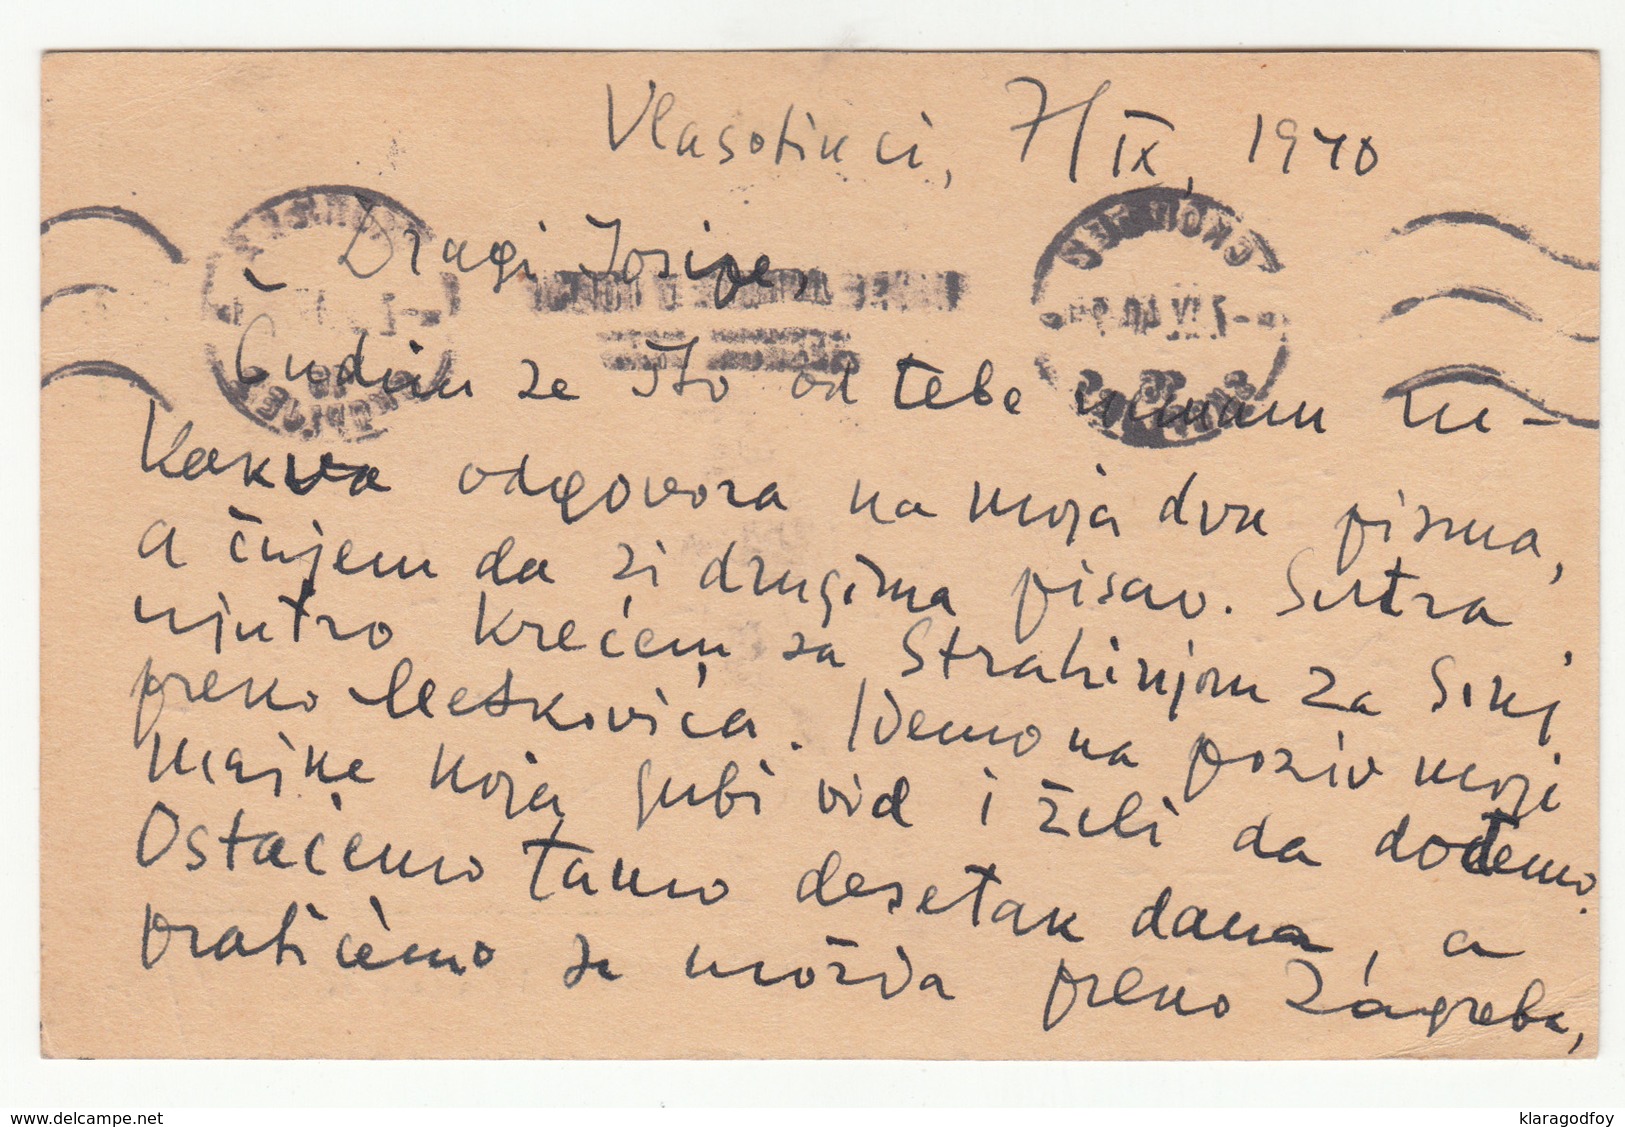 Vlasotinci, 7/IX, 1940
Dragi Josipe,
Čudim se što od tebe nemam ni-
kakva odgovora na moja dva pisma,
a čujem da si drugima pisao. Sutra
ujutro krećem sa Strahinjom za Sinj
preko Metkovića. Idemo na poziv moje
majke koja gubi vid i želi da dođemo.
Ostaćemo tamo desetak dana, a
vratićemo se možda preko Zagreba,
klaragodfoy
www.delcampe.net